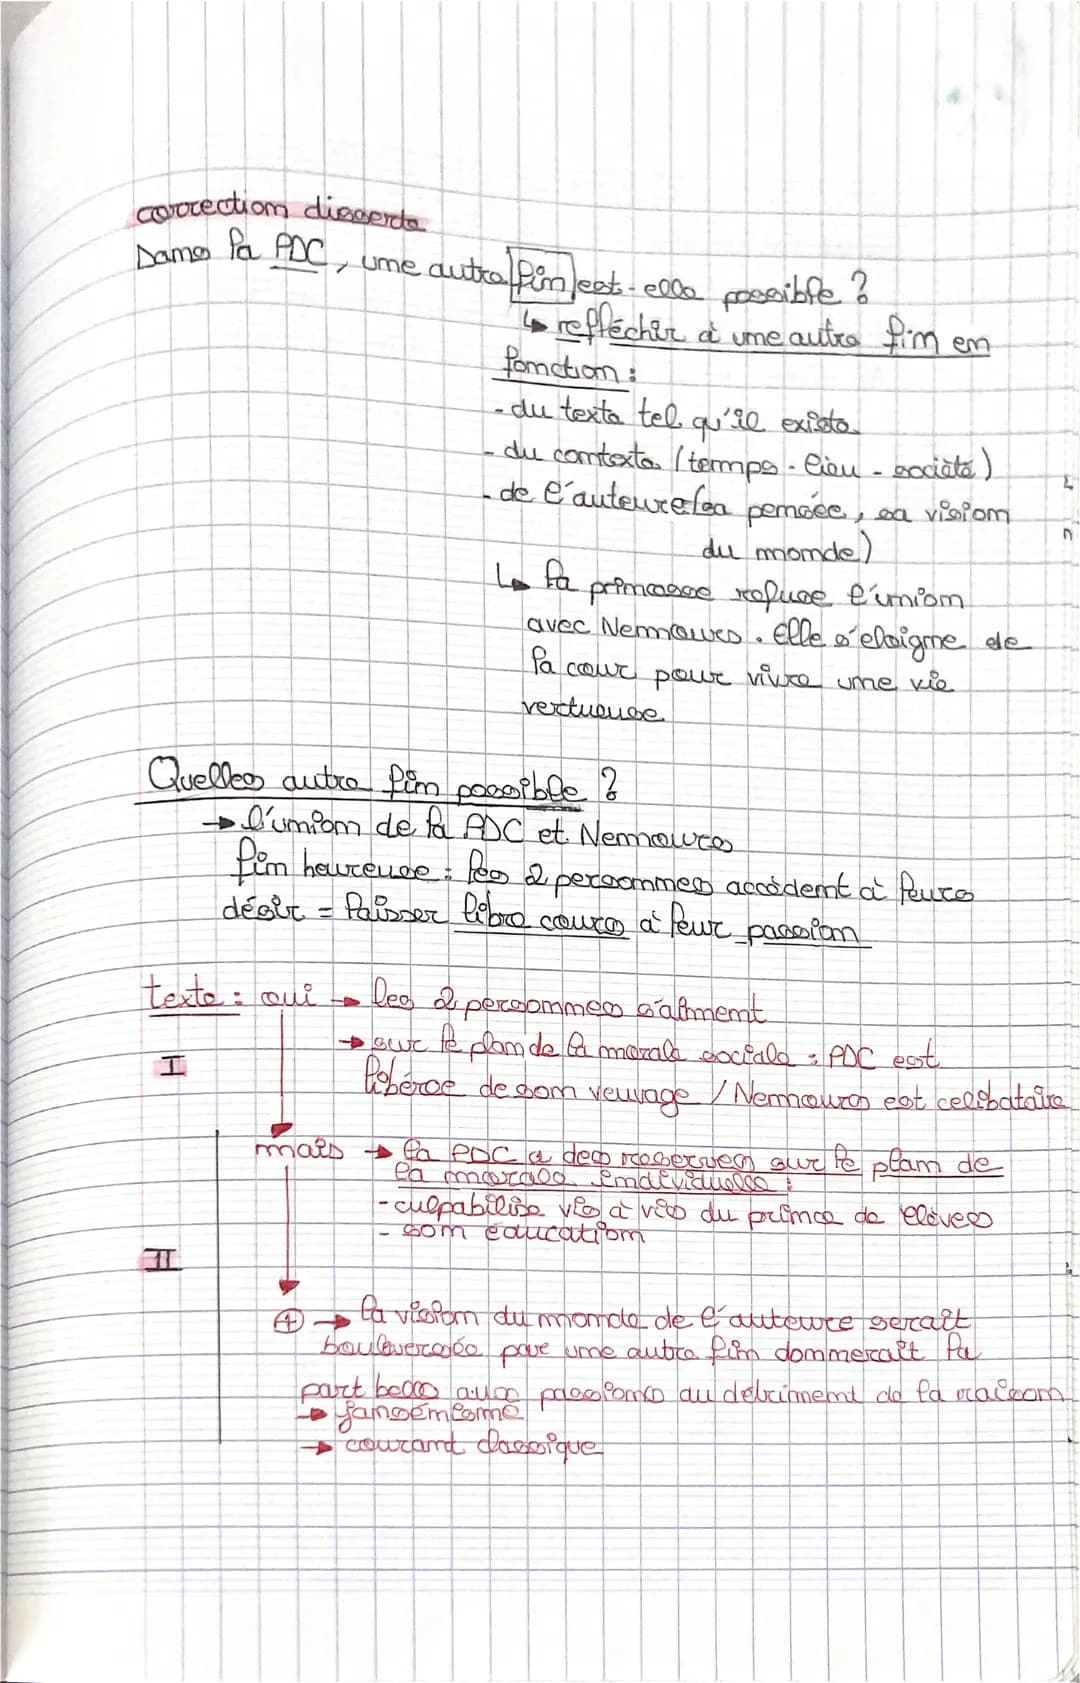 correction disserte
Dans la PDC, une autre fin est-elle possible ?
↳ reflechir à une autre fin en
fonction :
- du texte tel qu'il existe
- du contexte (temps - lieu - société)
- de l'auteure (sa pensée, sa vision
du monde)
↳ la princesse refuse l'union
avec Nemours. Elle s'eloigne de
la cour pour vivre une vie
vertueuse
Quelles autre fin possible ?
→ l'union de la PDC et Nemours
fin heureuse : les 2 personnes accèdent à leurs
désir = laisser libre cours à leur passion
texte : oui → les 2 personnes s'aiment
→ sur le plan de la morale sociale : PDC est
I
libérée de son veuvage / Nemours est celibataire
mais → la PDC a des reserves sur le plan de
la morale individuelle :
- culpabilise vis à vis du prince de Clèves
- son éducation
II
+ → la vision du monde de l'auteure serait
bouleversée pave une autre fin donnerait la
part belle aux passions au détriment de la raison
→ jansénisme
→ courant classique